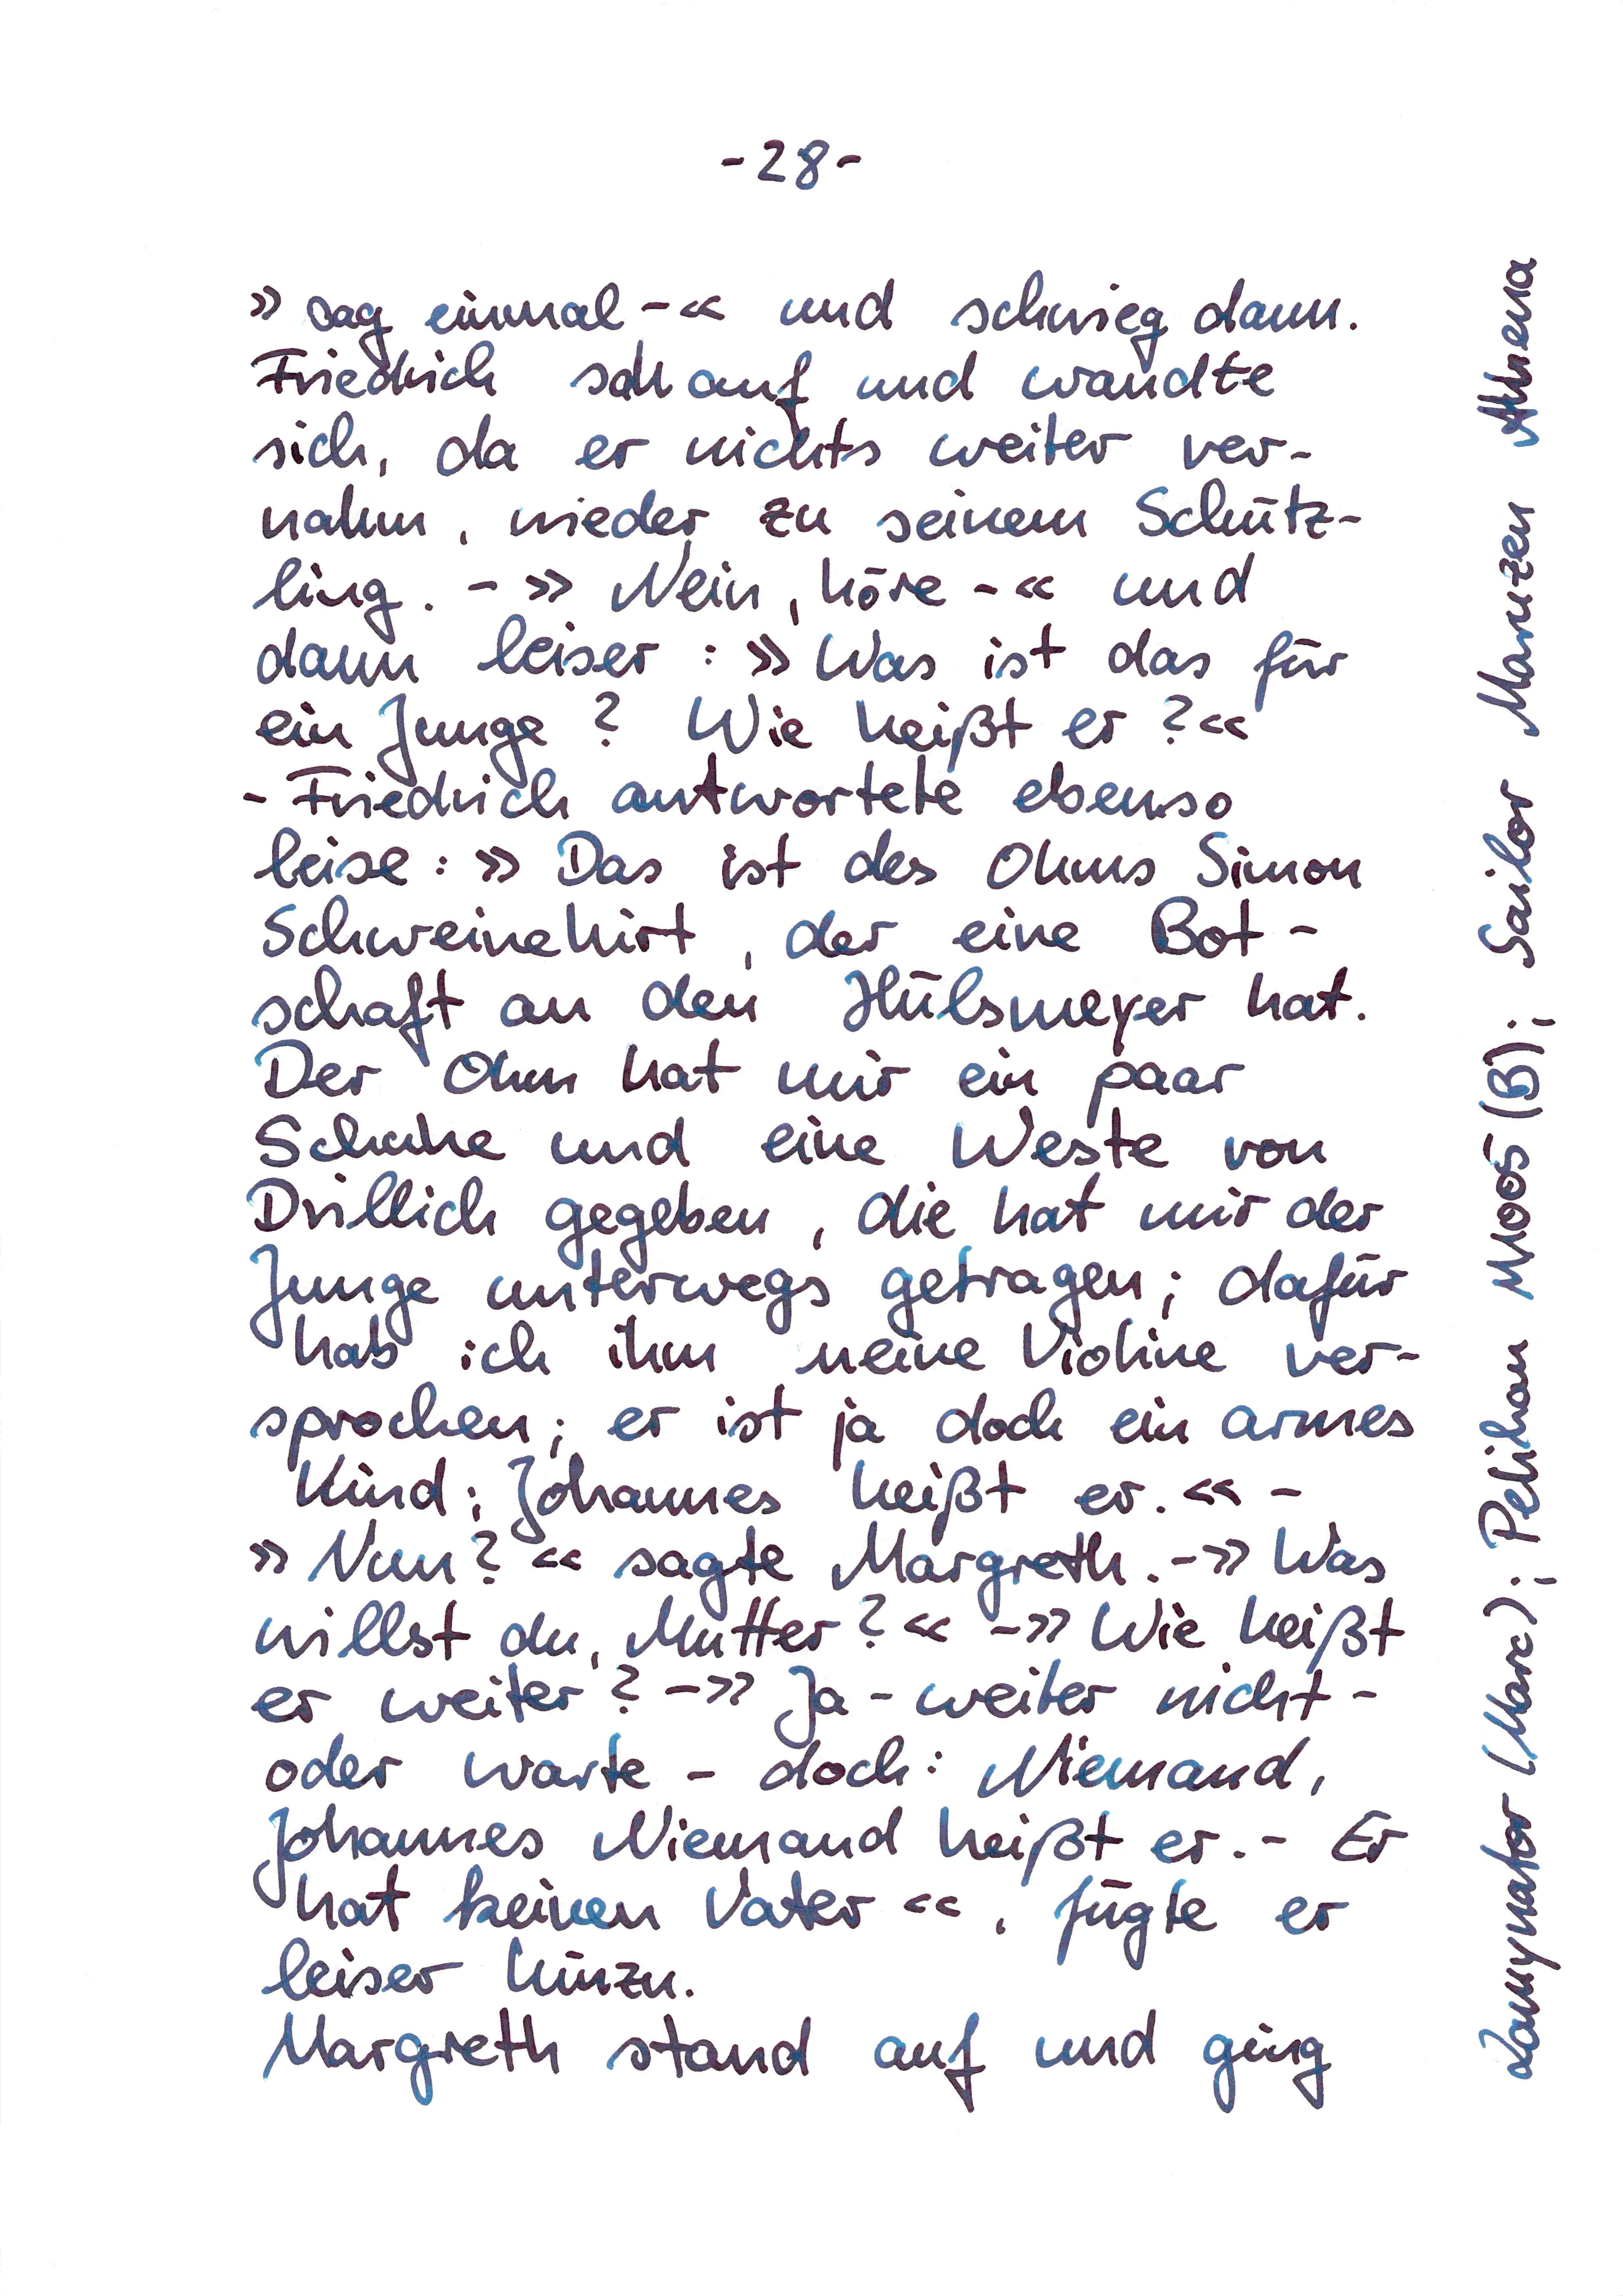 -28-
» sag einmal -« und schwieg dann.
Friedrich sah auf und wandte
sich, da er nichts weiter ver-
nahm, wieder zu seinem Schütz-
ling. - » Nein, höre -« und
dann leiser : » Was ist das für
ein Junge ? Wie heißt er ?«
- Friedrich antwortete ebenso
leise : » Das ist des Ohms Simon
Schweinehirt, der eine Bot-
schaft an den Hülsmeyer hat.
Der Ohm hat mir ein paar
Schuhe und eine Weste von
Drillich gegeben, die hat mir der
Junge unterwegs getragen; dafür
hab ich ihm meine Violine ver-
sprochen; er ist ja doch ein armes
Kind; Johannes heißt er. « -
» Nun? « sagte Margreth. -» Was
willst du, Mutter ? « -» Wie heißt
er weiter ? -» Ja - weiter nicht -
oder warte - doch: Niemand,
Johannes Niemand heißt er. - Er
hat keinen Vater «, fügte er
leiser hinzu.
Margreth stand auf und ging
(Marc); Pelikan M005 (B); Sailor Manuzen Athena